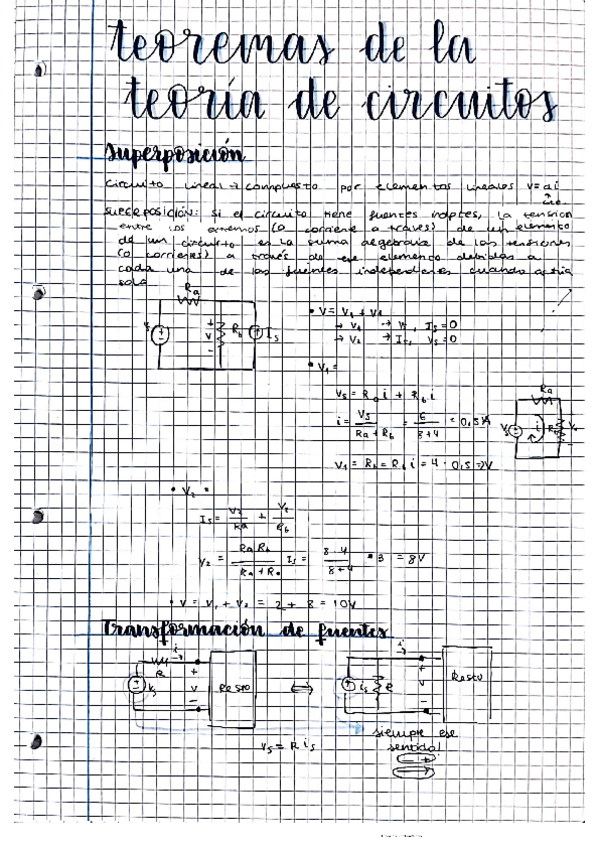 teoremas de la
teoría de circuitos
Superposición
circuito lineal → compuesto por elementos lineales v = ai
cte
SUPERPOSICIÓN: si el circuito tiene fuentes indptes, la tension
entre los extremos (o corriente a través) de un elemento
de un circuito es la suma algebraica de las tensiones
(o corrientes) a través de ese elemento debidas a
cada una de las fuentes independientes cuando actúa
sola
Ra
Vs + V − Rb Is
• V = V1 + V2
→ V1 → Vs, Is = 0
→ V2 → Is, Vs = 0
• V1 =
Vs = Ra i + Rb i
i = Vs / (Ra + Rb) = 6 / (8+4) = 0,5A
V1 = Rb = Rb i = 4 · 0,5 = 2V
Ra
Vs i Rb V1
• V2 •
Is = V2/Ra + V2/Rb
V2 = Ra Rb / (Ra + Rb) Is = 8·4 / (8+4) · 3 = 8V
• V = V1 + V2 = 2 + 8 = 10V
Transformación de fuentes
R i Vs + V − Resto ⟺ is R i + V − Resto
Vs = R is
siempre ese
sentido!
− +